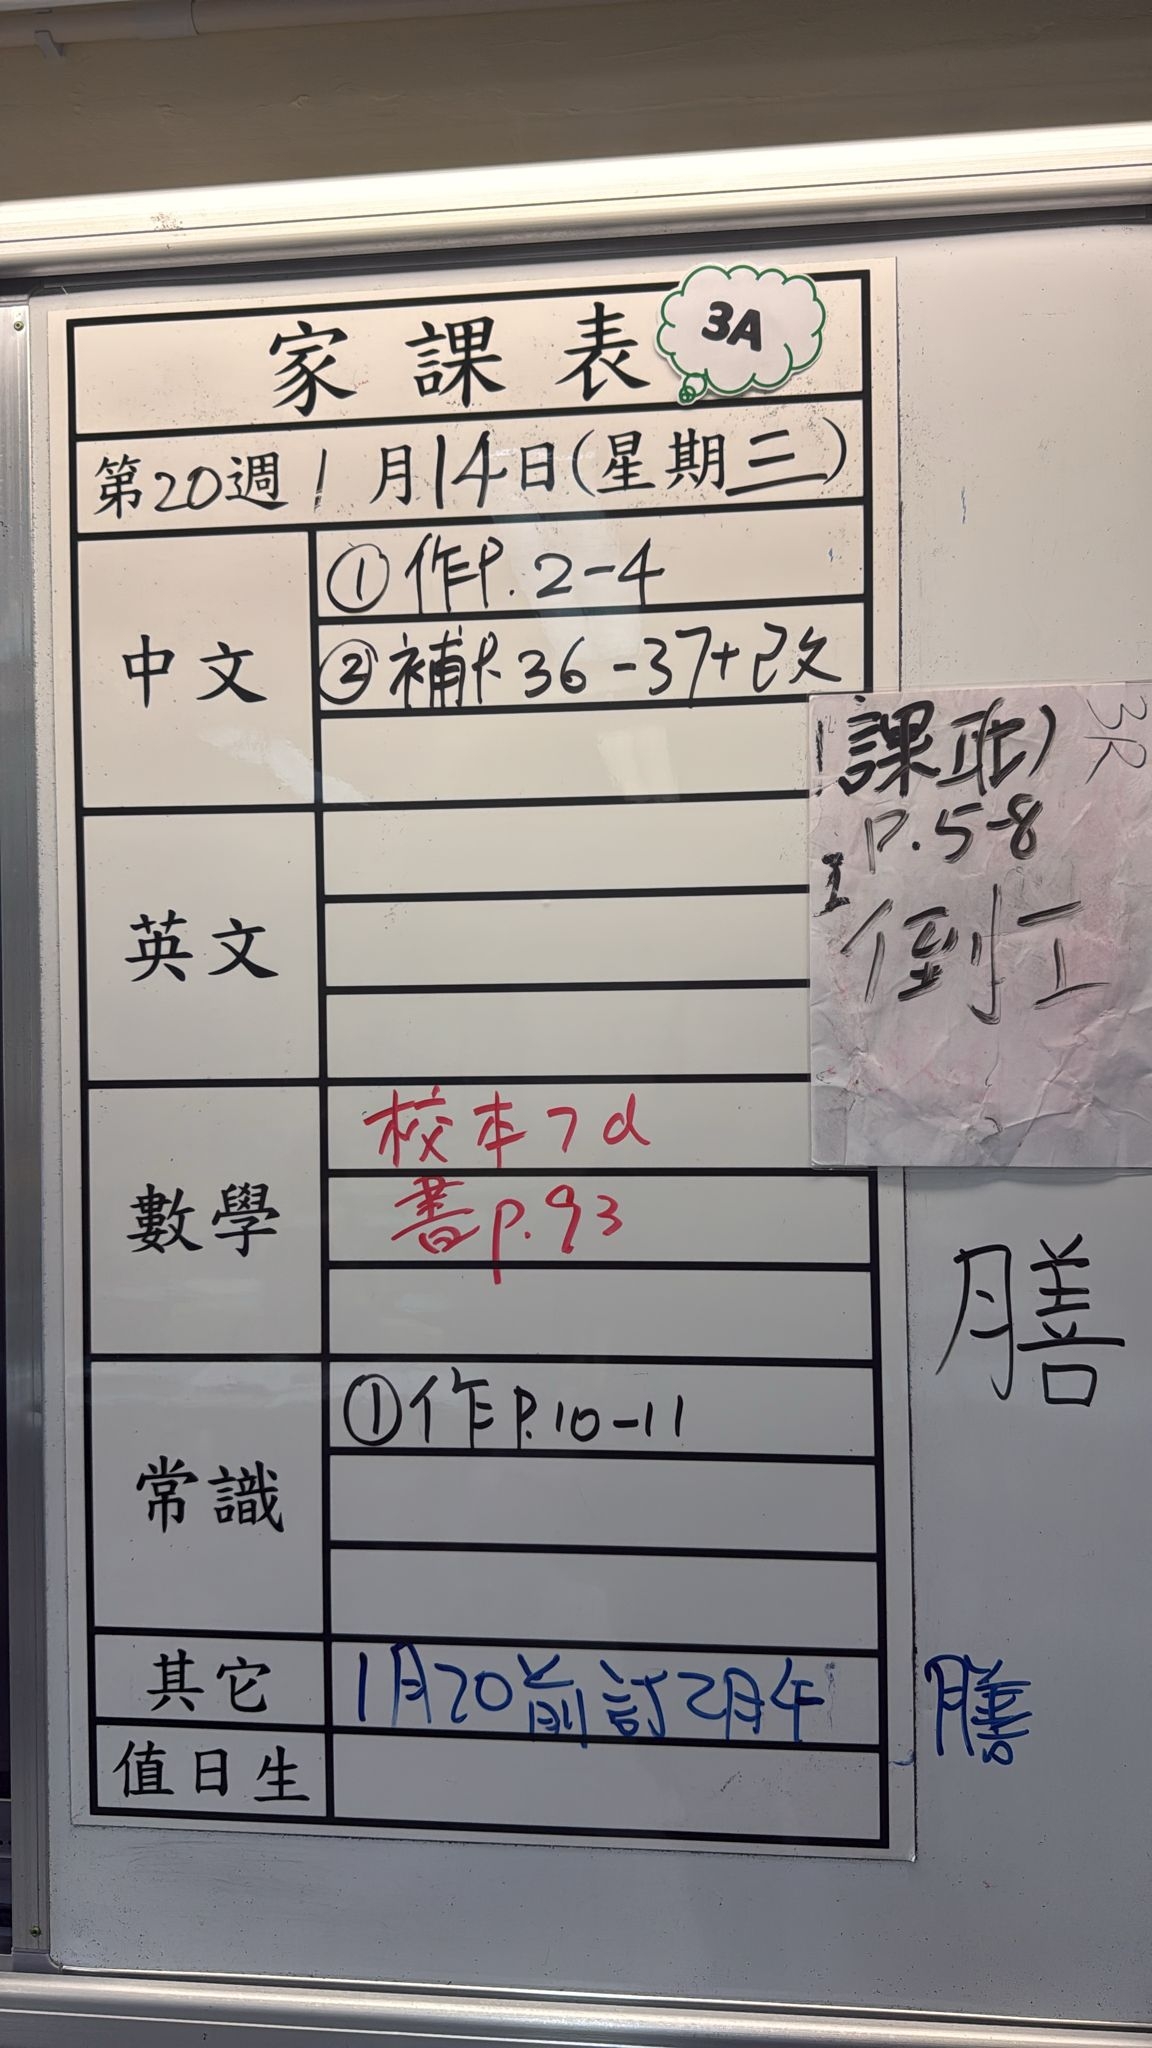 家課表 3A
第20週 1月14日(星期三)
中文
①作P.2-4
②補P.36-37+改
英文
3R
P.5-8
數學
校本7d
書p.93
膳
常識
①作P.10-11
其它
1月20前訂2月午膳
值日生